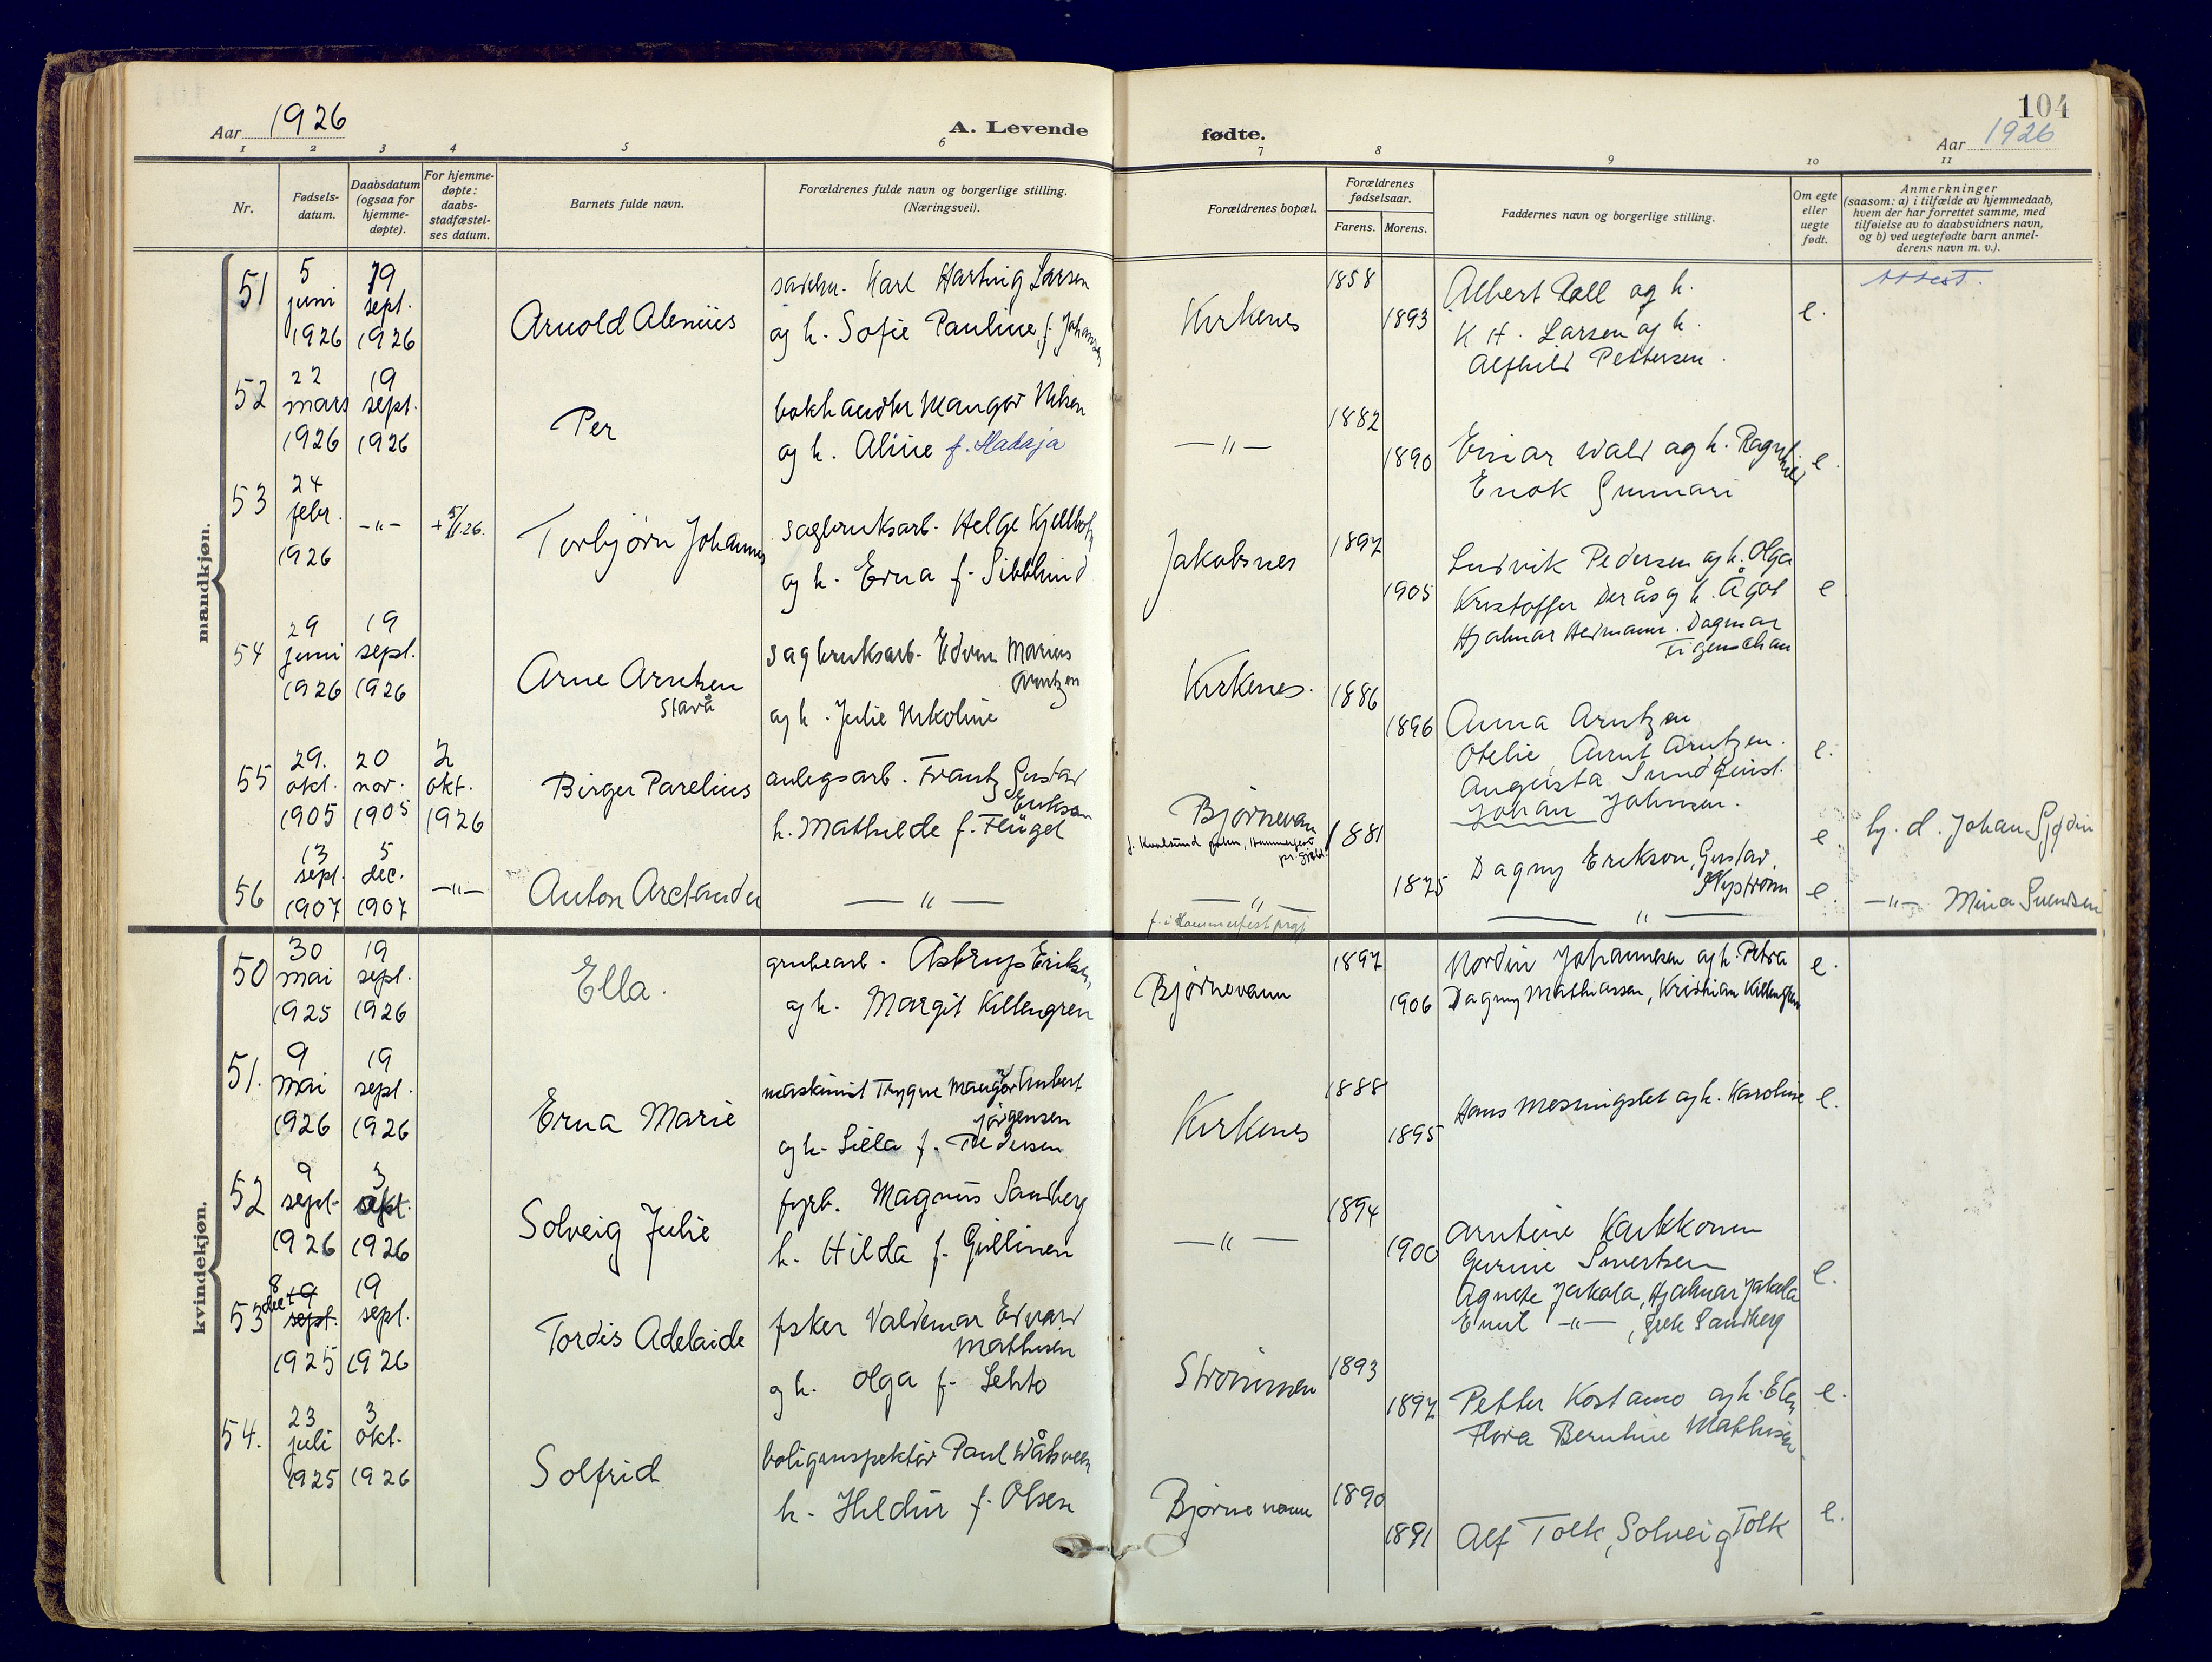 104
Aar 1926
A. Levende fødte.
Aar 1926
1 2 3 4 5 6 7 8 9 10 11
Nr.
Fødsels-
datum.
Daabsdatum
(ogsaa for
hjemme-
døpte).
For hjemme-
døpte:
daabs-
stadfæstel-
ses datum.
Barnets fulde navn.
Forældrenes fulde navn og borgerlige stilling.
(Næringsvei).
Forældrenes bopæl.
Forældrenes
fødselsaar.
Farens. Morens.
Faddernes navn og borgerlige stilling.
Om egte
eller
uegte
født.
Anmerkninger
(saasom: a) i tilfælde av hjemmedaab,
hvem der har forrettet samme, med
tilføielse av to daabsvidners navn,
og b) ved uegtefødte barn anmel-
derens navn m. v.).
mandkjøn.
51
5
juni
1926
19
sept.
1926
Arnold Alenius
Karl Hartvig Larsen
og h. Sofie Pauline, f. Johansen
Kirkenes
1858
1893
Albert Roll og h.
K H. Larsen og h.
Alfhild Pettersen.
e.
Attest.
52
22
mars
1926
19
sept.
1926
Per
bokhandler Mangor Nilsen
og h. Aline f. Hadaja
— " —
1882
1890
Einar Wald og h. Ragnhild
Enok Gunnari
e.
53
24
febr.
1926
— " —
Torbjørn Johannes
sagbruksarb. Helge
og h. Erna f. Sibblund
Jakobsnes
1897
1905
Ludvik Pedersen og h. Olga
Kristoffer Derås og h. Ågot
Hjalmar Hermann. Dagmar
Figenschau
e
54
29
juni
1926
19
sept.
1926
Arne Arntzen
Stavå
sagbruksarb. Edvin Marius
Arntzen
og h. Julie Nikoline
Kirkenes.
1886
1896
Anna Arntzen
Otelie, Arnt Arntzen.
Augusta Sundquist.
Johan Johnsen.
e.
55
29.
okt.
1905
20
nov.
1905
2
okt.
1926
Birger Parelius
anlegsarb. Frantz Gustav
Erikson
h. Mathilde f. Flügel
Bjørnevan
f. Kvalsund sokn, Hammerfest
pr.gjeld.
1881
1875
Dagny Erikson, Gustav
Nystrøm
e.
hj. d. Johan Sjødin
56
13
sept.
1907
5
dec.
1907
— " —
Anton Arctander
— " —
— " —
f. i Hammerfest prgj
— " —
e.
— " — Mina Svendsen
kvindekjøn.
50
30
mai
1925
19
sept.
1926
Ella.
grubearb. Astrup Eriksen,
og h. Margit Killengren
Bjørnevann
1897
1906
Nordin Johannesen og h. Petra
Dagny Mathiassen, Kristian Killengren
e.
51.
9
mai
1926
19
sept.
1926
Erna Marie
maskinist Trygve Mangor Anbert
Jørgensen
og h. Lilla f. Pedersen
Kirkenes
1888
1895
Hans Mesningslet og h. Karoline
e.
52
9
sept.
1926
3
okt.
1926
Solveig Julie
fyrb. Magnus Sandberg
h. Hilda f. Gullinen
— " —
1894
1900
Arntine Karkkonen
Gurine Sivertsen
Agnete Jakola, Hjalmar Jakola
Emil — " —, Grete Sandberg
e.
53
8
1925
19
sept.
1926
Tordis Adelaide
fisker Valdemar Edvard
Mathisen
og h. Olga f. Lehto
Strømmen
1893
1897
Petter Kostamo og h. Elen
Flora Berntine Mathisen
e.
54.
23
juli
1925
3
okt.
1926
Solfrid
boliginspektør Paul Wåksveen
h. Hildur f. Olsen
Bjørnevann
1890
1891
Alf Tolk, Solveig Tolk
e.